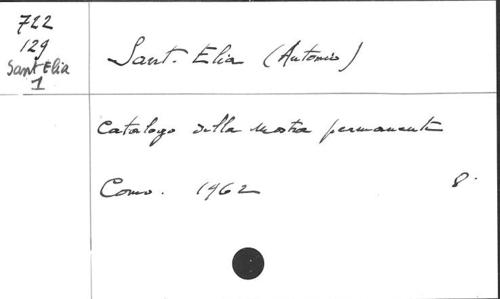 722
129
Sant Elia
1
Sant. Elia (Antonio)
Catalogo della mostra permanente
Como. 1962 8.